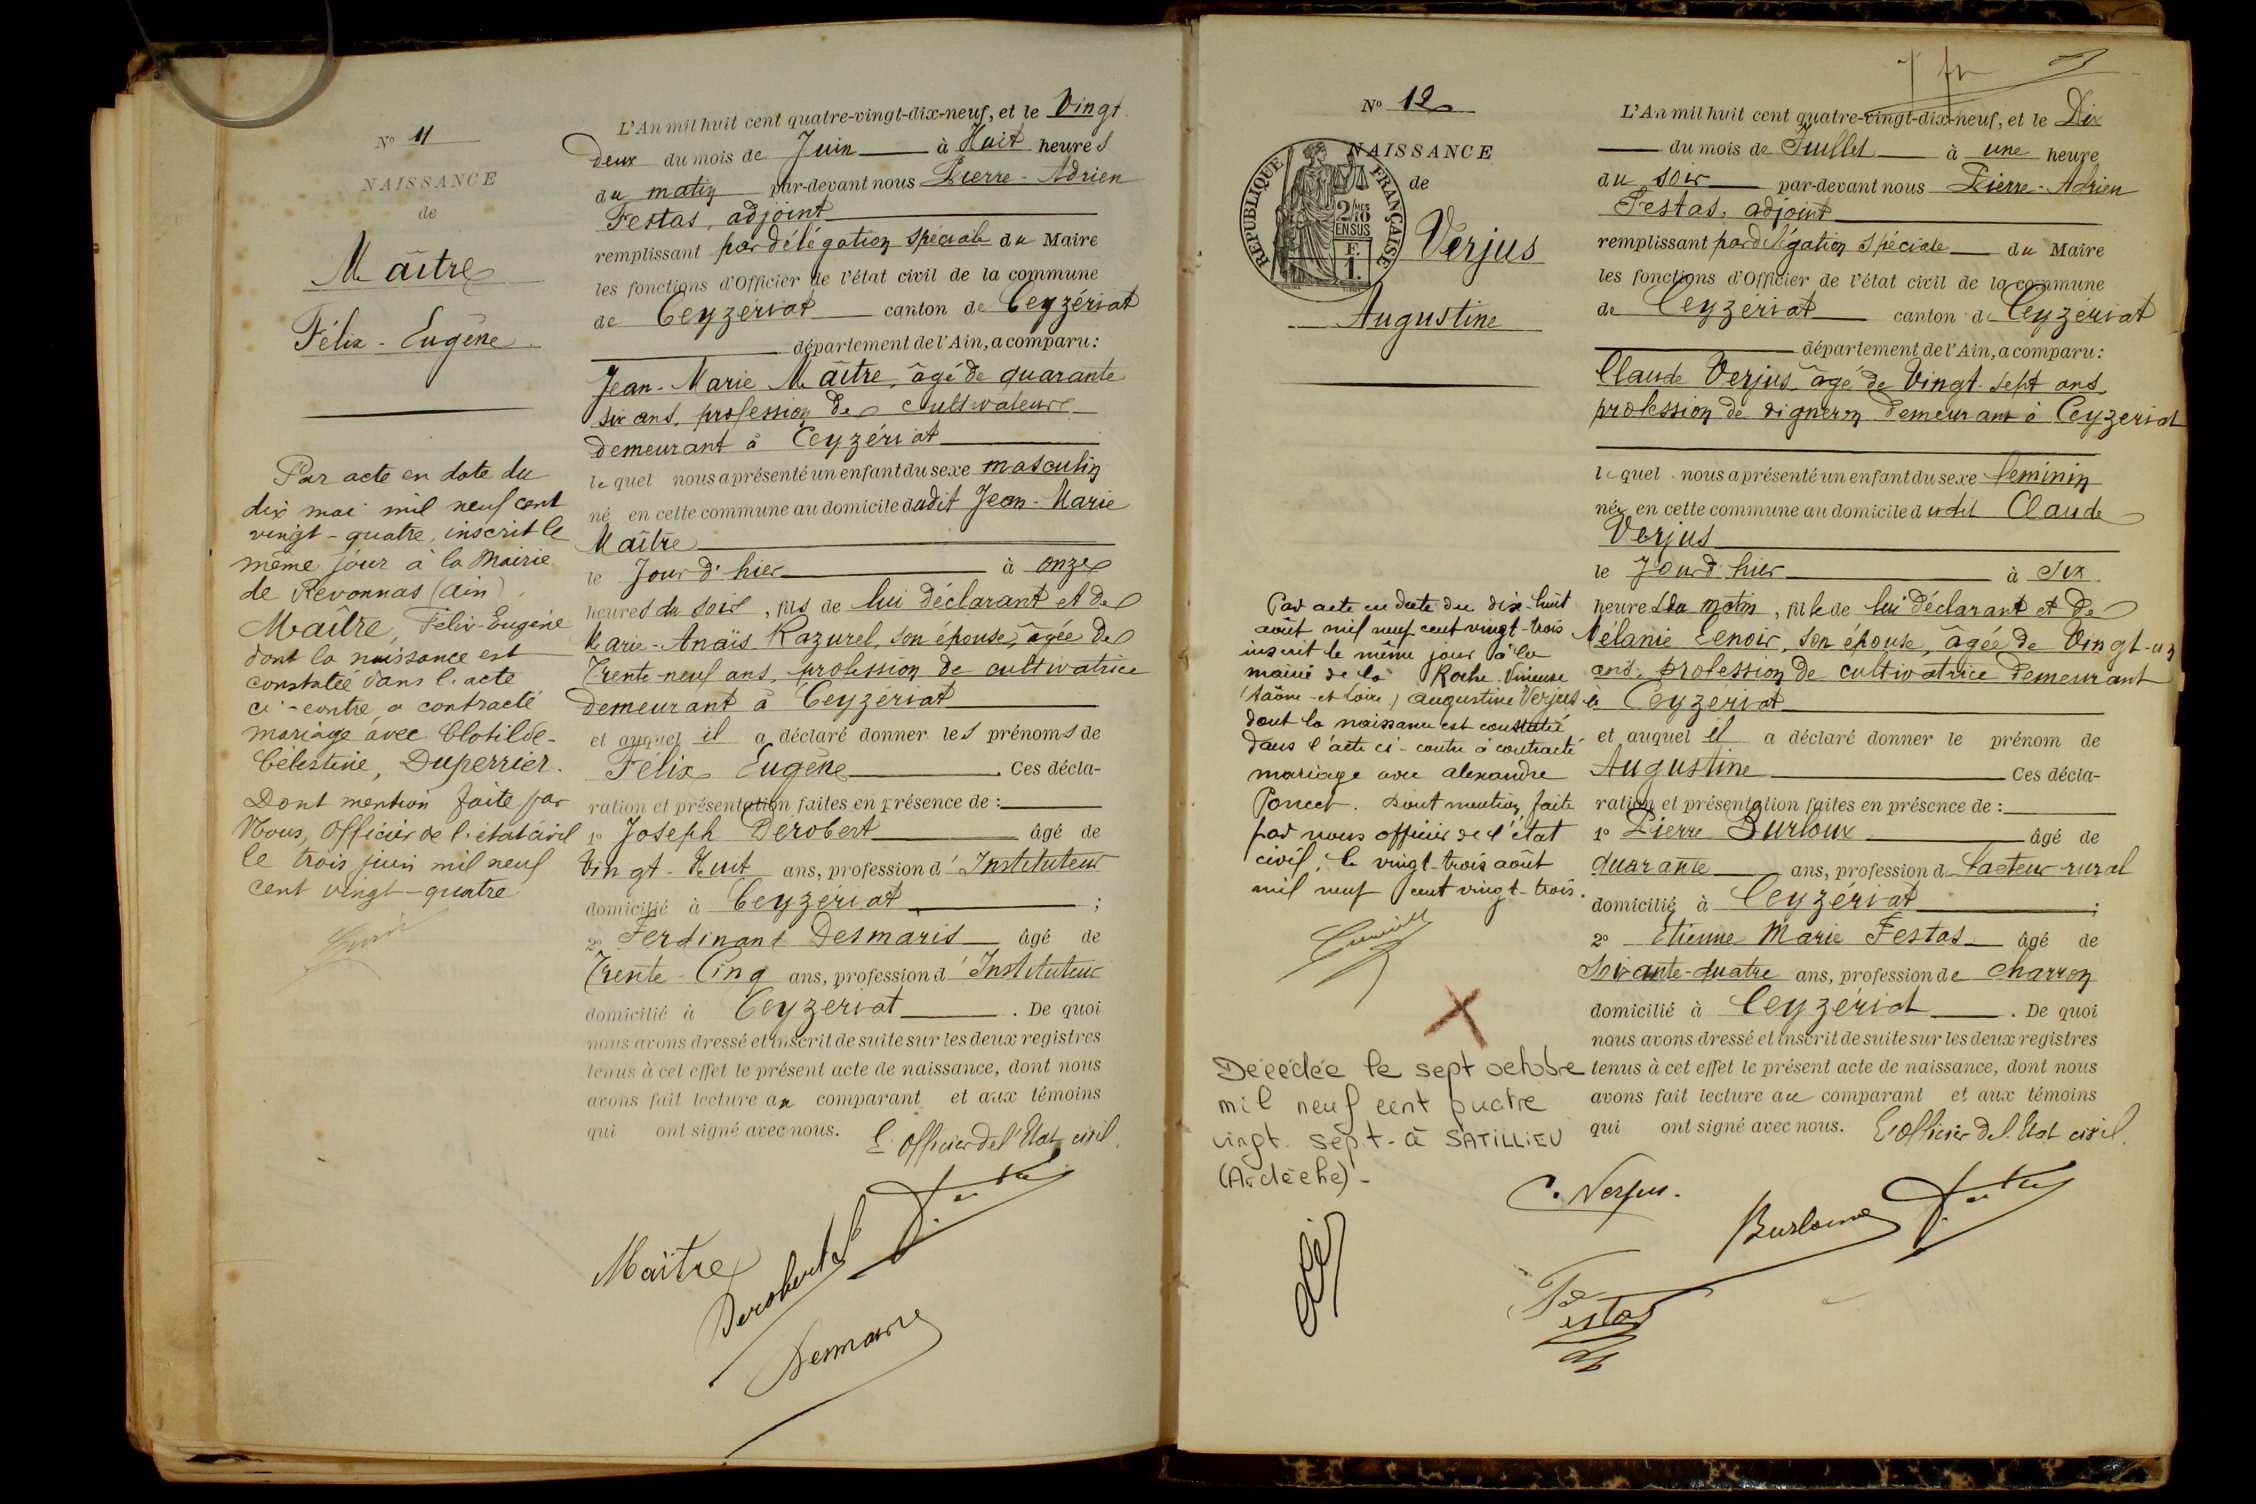 N° 11
NAISSANCE
de
Maître
Félix - Eugène
Par acte en date du
dix mai mil neuf cent
vingt - quatre, inscrit le
même jour à la Mairie
de Revonnas (Ain)
Maître, Félix-Eugène
dont la naissance est
constatée dans l'acte
ci-contre, a contracté
mariage avec Clotilde-
Célestine, Duperrier.
Dont mention faite par
Nous, Officier de l'état civil
le trois juin mil neuf
cent vingt-quatre
L'An mil huit cent quatre-vingt-dix-neuf, et le Vingt
deux du mois de Juin à Huit heures
du matin par-devant nous Pierre - Adrien
Festas, adjoint
remplissant par délégation spéciale du Maire
les fonctions d'Officier de l'état civil de la commune
de Ceyzériat canton de Ceyzériat
département de l'Ain, a comparu :
Jean - Marie Maître, âgé de quarante
six ans, profession de cultivateur
demeurant à Ceyzériat
lequel nous a présenté un enfant du sexe masculin
né en cette commune au domicile dudit Jean - Marie
Maître
le Jour d'hier à onze
heures du soir, fils de lui déclarant et de
Marie - Anaïs Razurel, son épouse, âgée de
Trente-neuf ans, profession de cultivatrice
demeurant à Ceyzériat
et auquel il a déclaré donner les prénoms de
Félix Eugène Ces décla-
ration et présentation faites en présence de :
1° Joseph Dérobert âgé de
Vingt - Huit ans, profession d'Instituteur
domicilié à Ceyzériat ;
2° Ferdinand Desmaris âgé de
Trente - Cinq ans, profession d'Instituteur
domicilié à Ceyzériat . De quoi
nous avons dressé et inscrit de suite sur les deux registres
tenus à cet effet le présent acte de naissance, dont nous
avons fait lecture au comparant et aux témoins
qui ont signé avec nous. L'Officier de l'Etat civil.
Maître
Derobert
Desmaris
N° 12
NAISSANCE
de
REPUBLIQUE FRANÇAISE
2/10 MES
EN SUS
F.
1.
Verjus
Augustine
Par acte en date du dix-huit
août mil neuf cent vingt-trois
inscrit le même jour à la
mairie de la Roche-Vineuse
(Saône-et-Loire) Augustine Verjus
dont la naissance est constatée
dans l'acte ci-contre a contracté
mariage avec Alexandre
Poncet. Dont mention faite
par nous officier de l'état
civil, le vingt-trois août
mil neuf cent vingt-trois.
Décédée le sept octobre
mil neuf cent quatre
vingt sept - à SATILLIEU
(Ardèche) -
L'An mil huit cent quatre-vingt-dix-neuf, et le Dix
du mois de Juillet à une heure
du soir par-devant nous Pierre - Adrien
Festas, adjoint
remplissant par délégation spéciale du Maire
les fonctions d'Officier de l'état civil de la commune
de Ceyzériat canton de Ceyzériat
département de l'Ain, a comparu :
Claude Verjus âgé de Vingt-sept ans,
profession de vigneron demeurant à Ceyzériat
lequel nous a présenté un enfant du sexe féminin
née en cette commune au domicile dudit Claude
Verjus
le Jour d'hier à Six
heures du matin, fille de lui déclarant et de
Mélanie Lenoir, son épouse, âgée de Vingt-un
ans, profession de cultivatrice demeurant
à Ceyzériat
et auquel il a déclaré donner le prénom de
Augustine Ces décla-
ration et présentation faites en présence de :
1° Pierre Burloux âgé de
quarante ans, profession de facteur rural
domicilié à Ceyzériat ;
2° Etienne Marie Festas âgé de
Soixante-quatre ans, profession de charron
domicilié à Ceyzériat . De quoi
nous avons dressé et inscrit de suite sur les deux registres
tenus à cet effet le présent acte de naissance, dont nous
avons fait lecture au comparant et aux témoins
qui ont signé avec nous. L'Officier de l'Etat civil.
C. Verjus.
Burloux
Festas